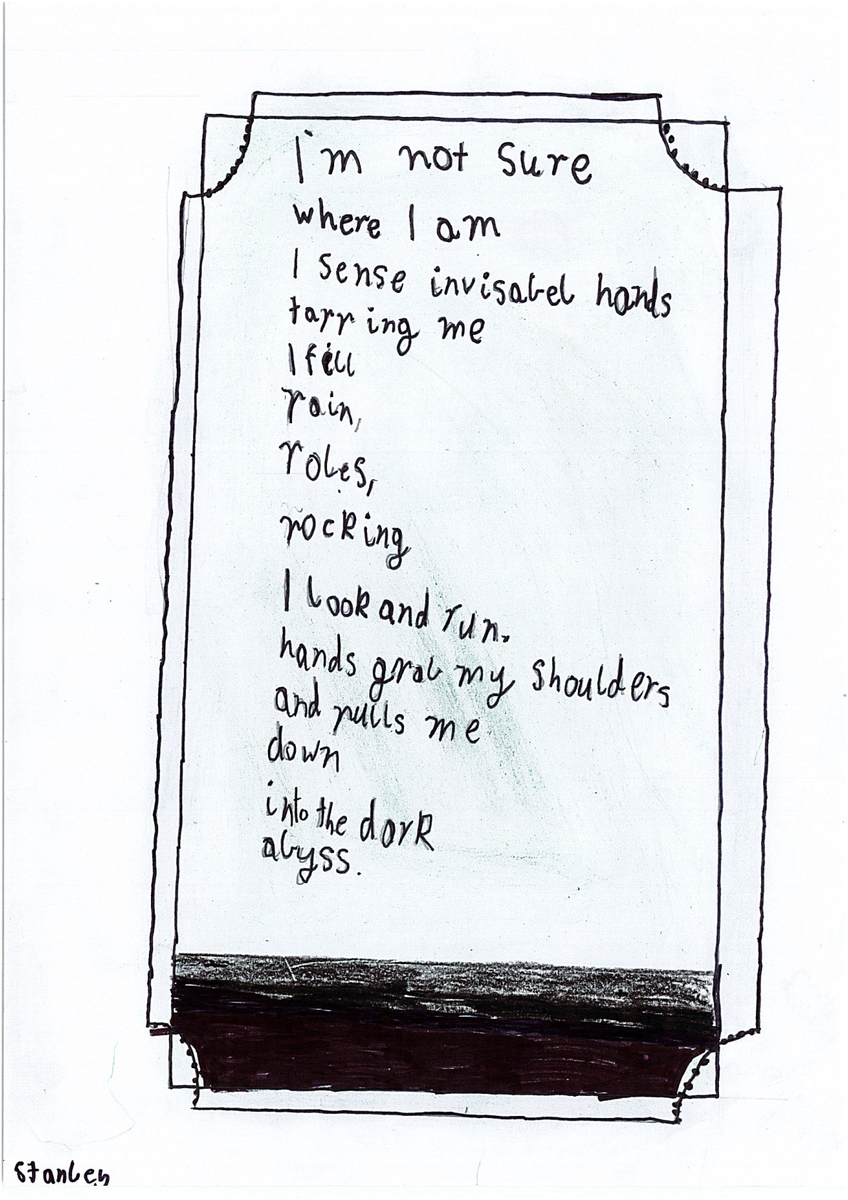 I'm not sure
where I am
I sense invisabel hands
tarring me
I fell
rain,
robes,
rocking
I look and run.
hands grab my shoulders
and pulls me
down
into the dark
abyss.
Stanley